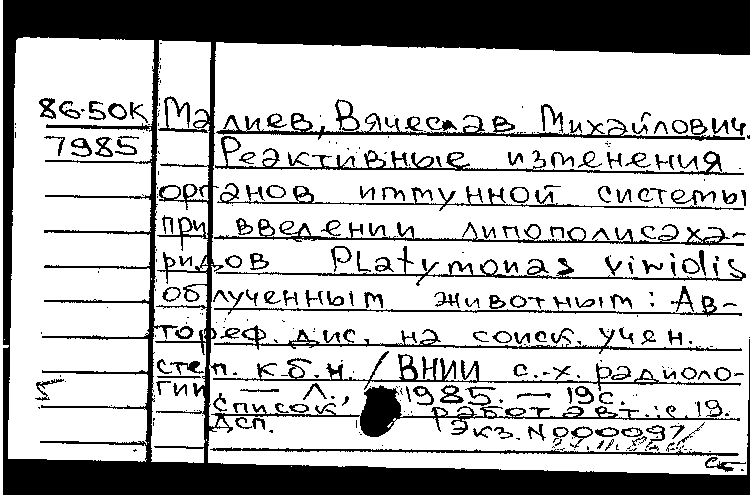 86-50К Малиев, Вячеслав Михайлович.
7985 Реактивные изменения
органов иммунной системы
при введении липополисаха-
ридов Platymonas viridis
облученным животным: Ав-
тореф. дис. на соиск. учен.
степ. к.б.н. / ВНИИ с.-х. радиоло-
гии. — Л., 1985. — 19 с.
Список работ авт.: с. 19.
Дсп. Экз. N 000097